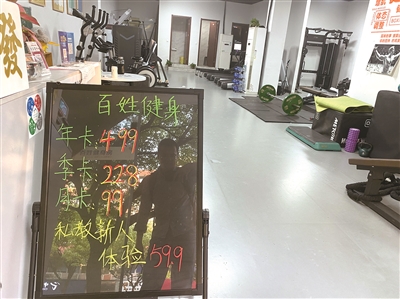 發
百姓健身
年卡:499
季卡:228
月卡:99
私教新人
体验59.9